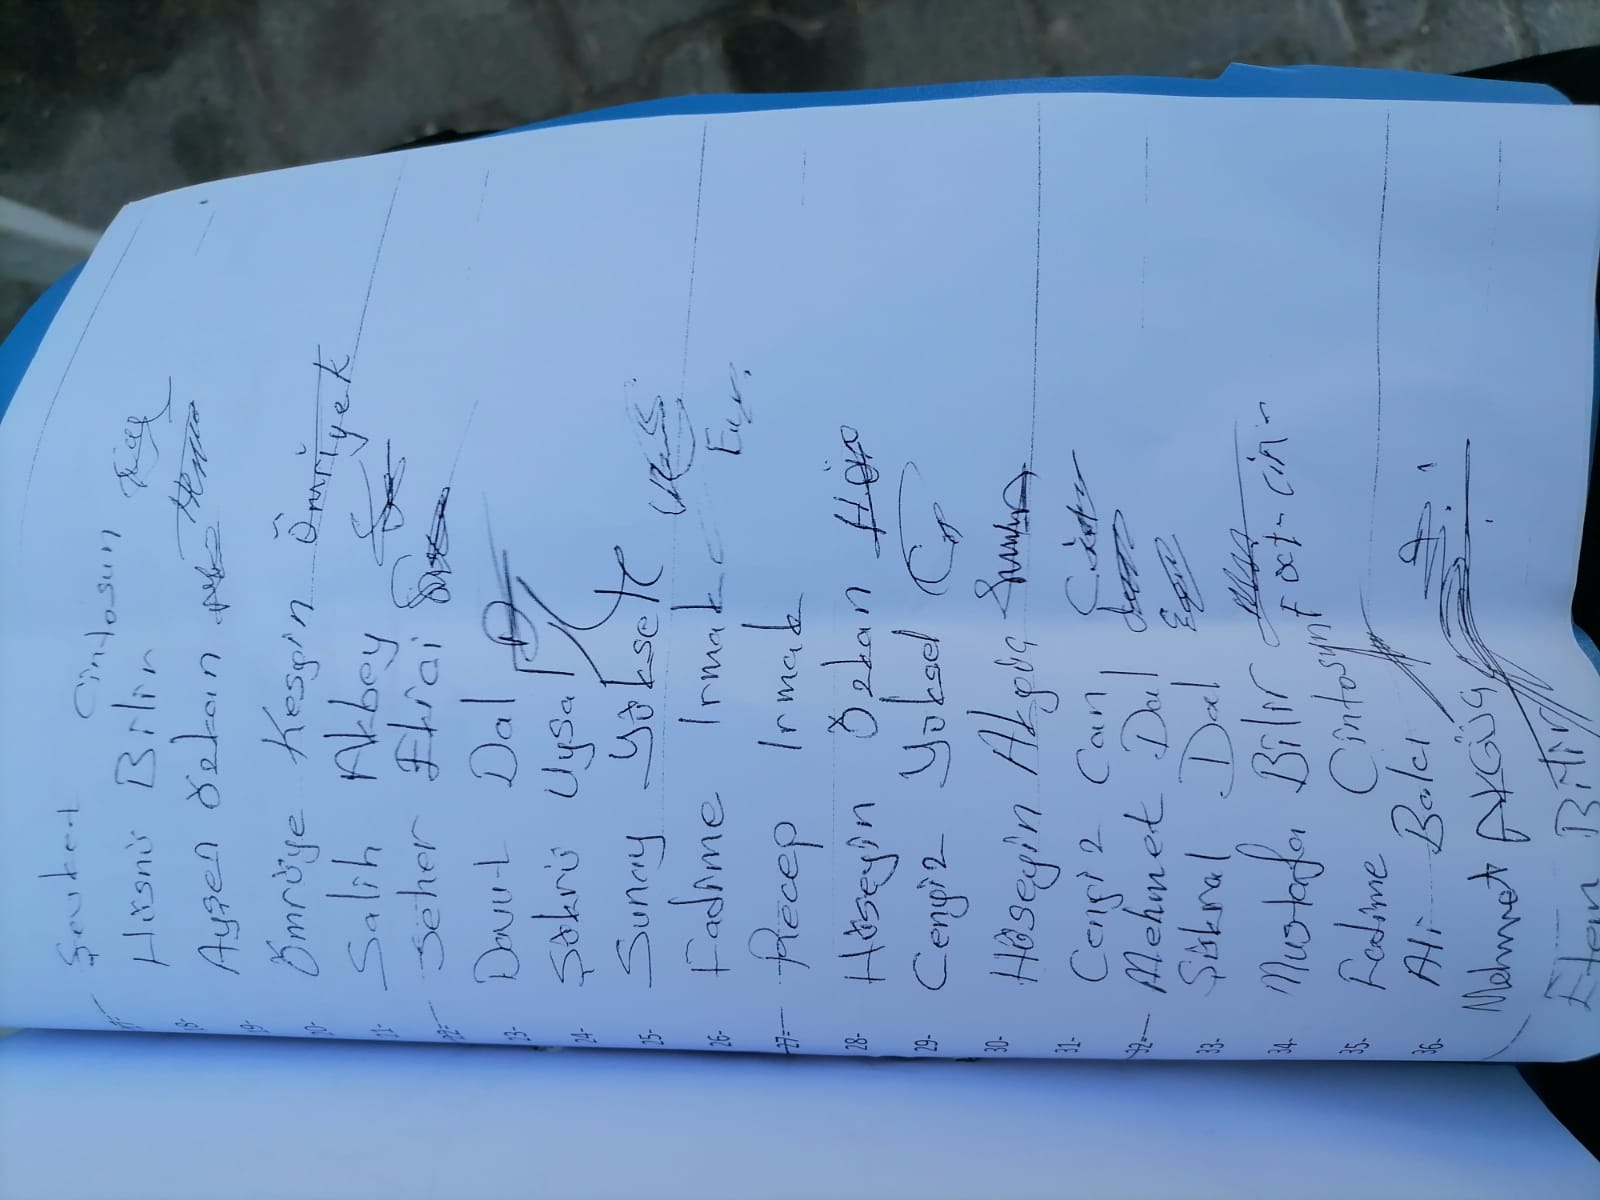 17- Şevket Cintosun
18- Hüsnü Bilir
19- Ayşen Özkan
20- Ömrüye Kesgin Ömriyek
21- Salih Akbey
22- Seher
23- Davut Dal
24- Şükrü Uysal
25- Sunay Yüksel
26- Fadime Irmak
27- Recep Irmak
28- Hüseyin Özkan
29- Cengiz Yüksel
30- Hüseyin Akgüç
31- Cengiz Can
32- Mehmet Dal
33- Dal
34- Mustafa Bilir
35- Fadime Cintosun
36- Ali Balcı
Mehmet AKGÜÇ
Bilir